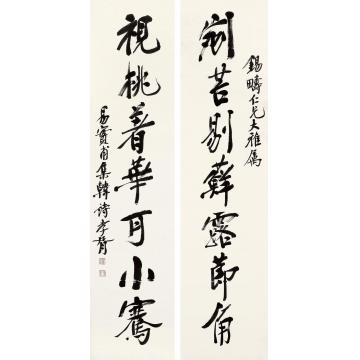 錫疇仁兄大雅屬
剜苔剔蘚露節角
視桃著華可小騫
易實甫集韓詩孝胥